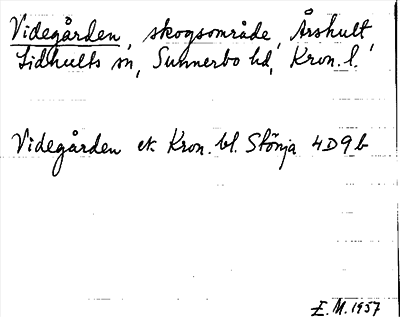 Videgården, skogsområde, Årshult,
Lidhults sn, Sunnerbo hd, Kron. l.
Videgården ek Kron. bl. Stönja 4D9b
E.M. 1957